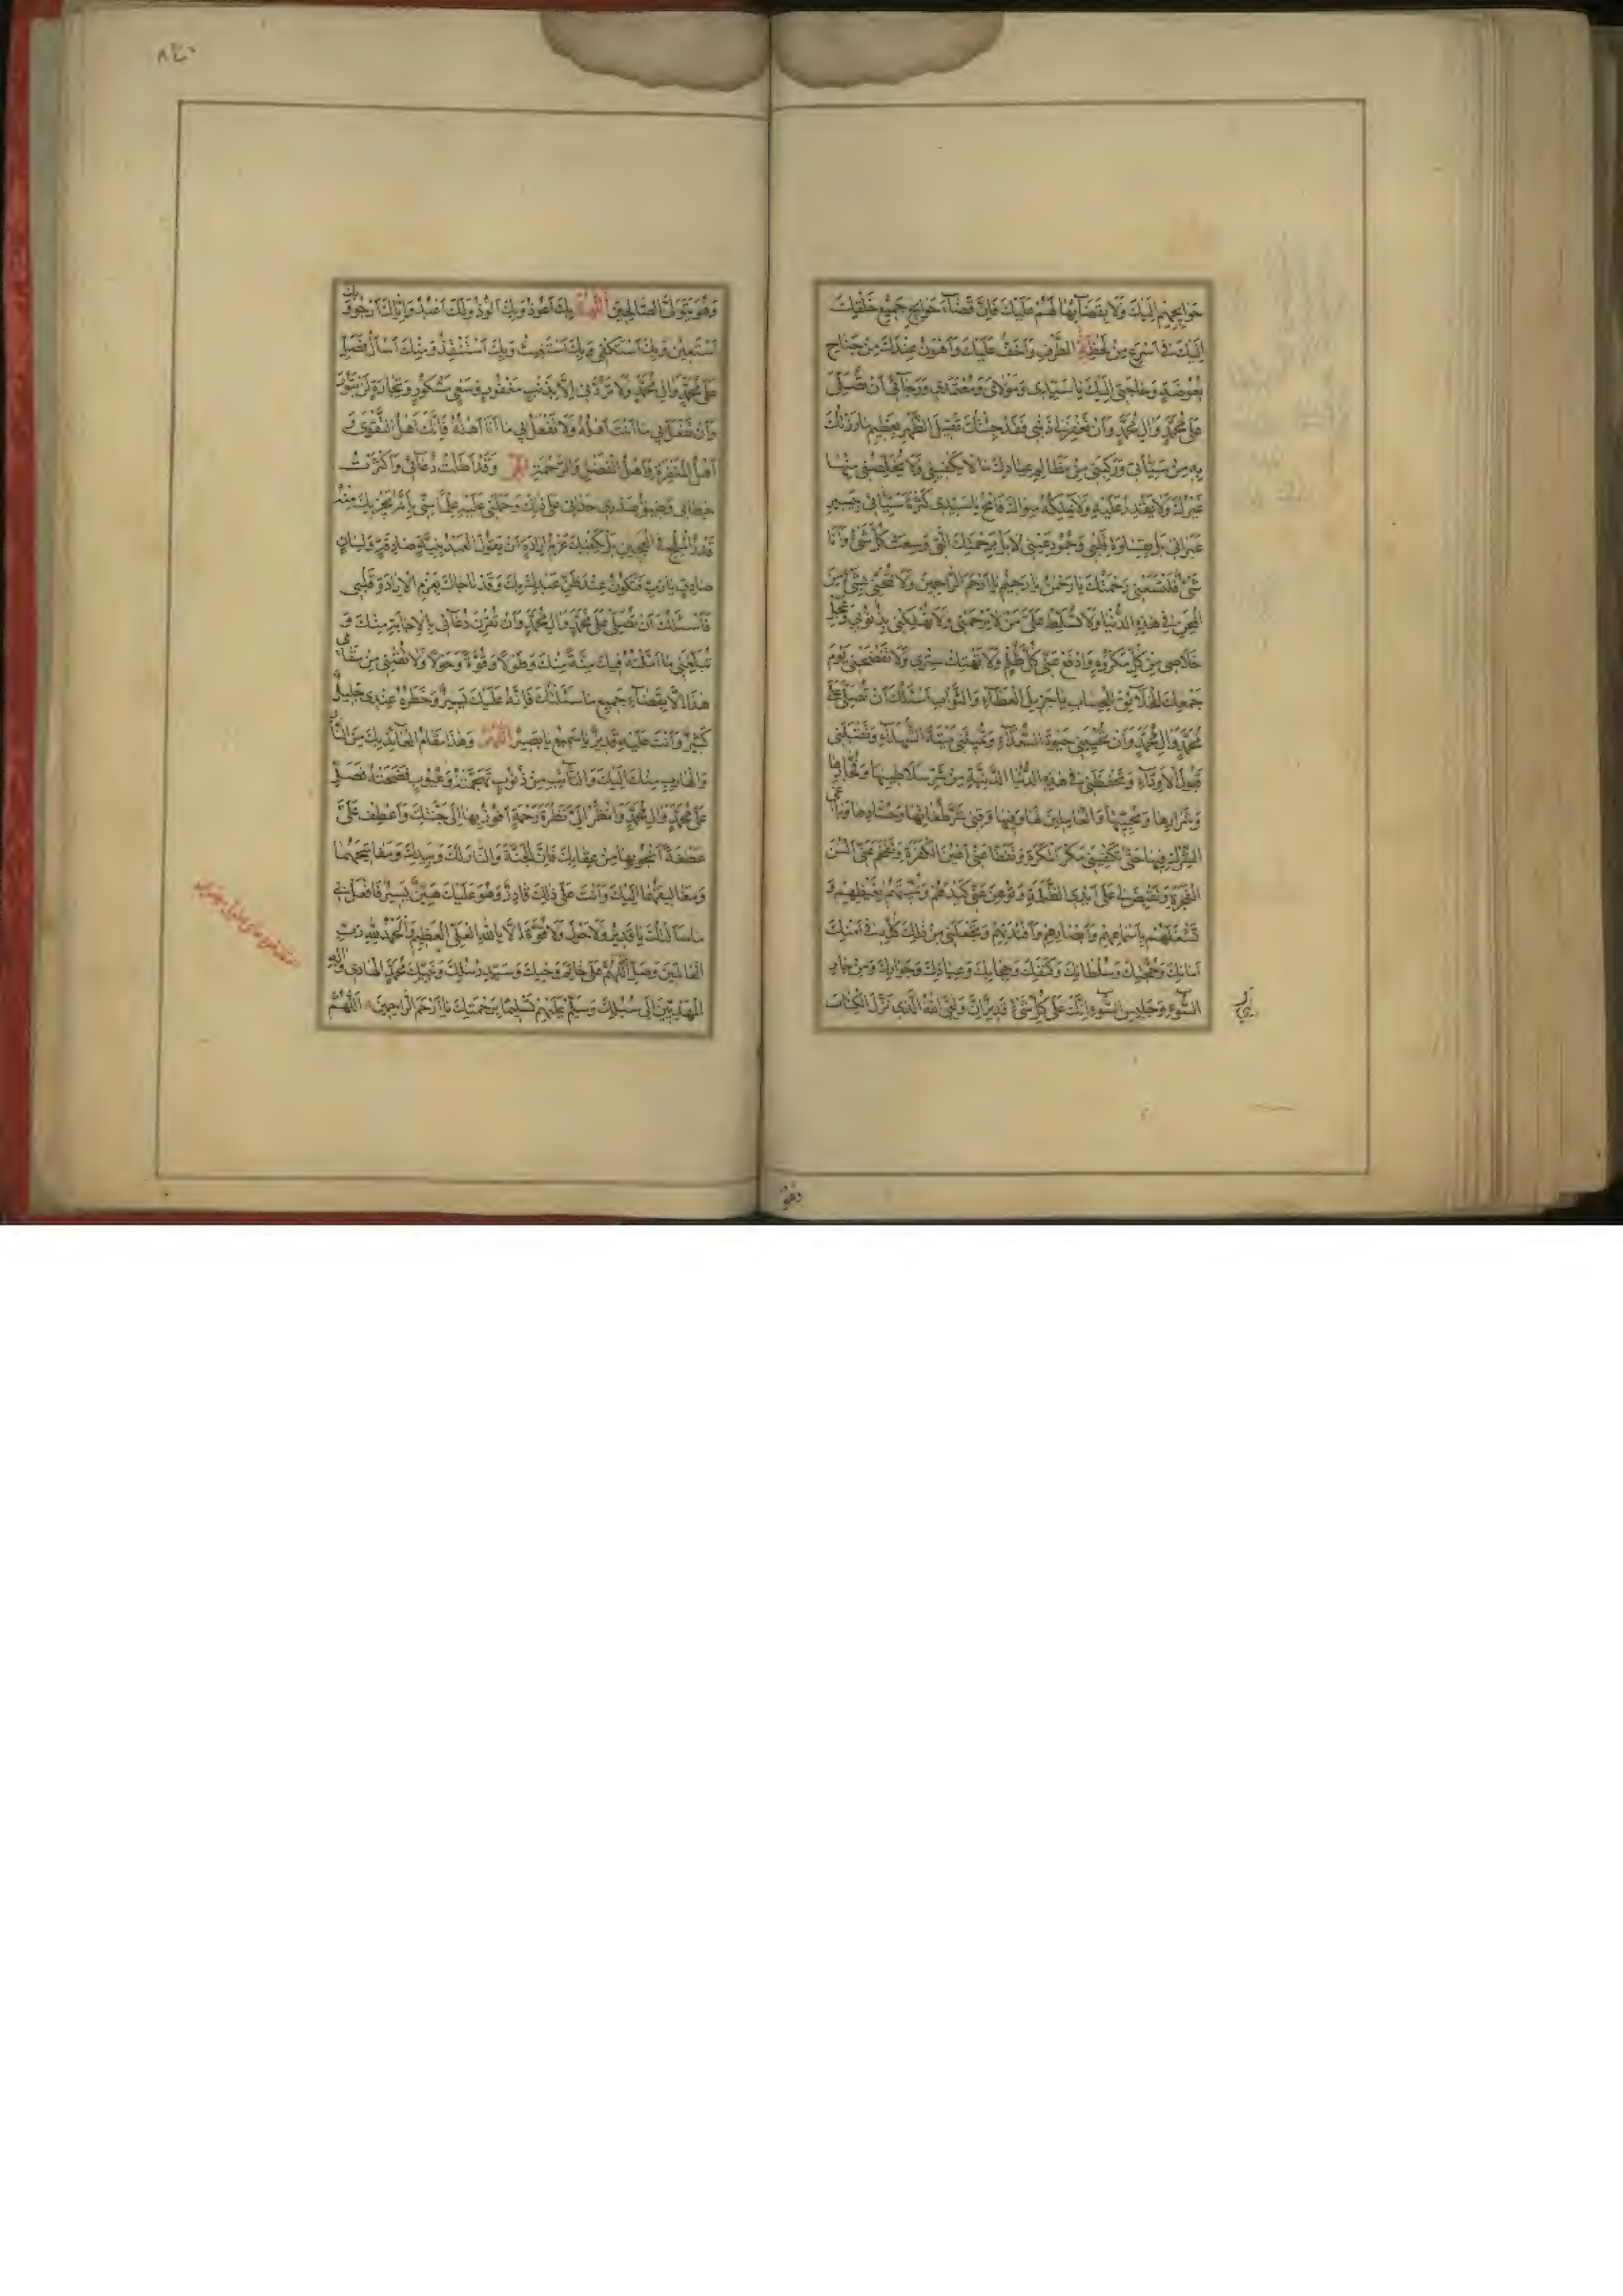 حَوَائِجِهِمْ إِلَيْكَ وَلَا بِقَضَائِهَا لَهُمْ عَلَيْكَ فَإِنَّ قَضَاءَ حَوَائِجِ جَمِيعِ خَلْقِكَ
إِلَيْكَ فِي أَسْرَعَ مِنْ لَحْظَةِ الطَّرْفِ وَأَخَفُّ عَلَيْكَ وَأَهْوَنُ عِنْدَكَ مِنْ جَنَاحِ
بَعُوضَةٍ وَحَاجَتِي إِلَيْكَ يَا سَيِّدِي وَمَوْلَايَ وَمُعْتَمَدِي وَرَجَائِي أَنْ تُصَلِّيَ
عَلَى مُحَمَّدٍ وَآلِ مُحَمَّدٍ وَأَنْ تَغْفِرَ لِي ذَنْبِي فَقَدْ جِئْتُكَ ثَقِيلَ الظَّهْرِ بِعَظِيمِ مَا بَارَزْتُكَ
بِهِ مِنْ سَيِّئَاتِي وَرَكِبَنِي مِنْ مَظَالِمِ عِبَادِكَ مَا لَا يَكْفِينِي وَلَا يُخَلِّصُنِي مِنْهَا
غَيْرُكَ وَلَا يَقْدِرُ عَلَيْهِ وَلَا يَمْلِكُهُ سِوَاكَ فَامْحُ يَا سَيِّدِي كَثْرَةَ سَيِّئَاتِي بِيَسِيرِ
عَبَرَاتِي بَلْ بِقَسَاوَةِ قَلْبِي وَجُمُودِ عَيْنِي لَا بَلْ بِرَحْمَتِكَ الَّتِي وَسِعَتْ كُلَّ شَيْءٍ وَأَنَا
شَيْءٌ فَلْتَسَعْنِي رَحْمَتُكَ يَا رَحْمٰنُ يَا رَحِيمُ يَا أَرْحَمَ الرَّاحِمِينَ وَلَا تَمْتَحِنِّي بِشَيْءٍ مِنَ
الْمِحَنِ فِي هٰذِهِ الدُّنْيَا وَلَا تُسَلِّطْ عَلَيَّ مَنْ لَا يَرْحَمُنِي وَلَا تُهْلِكْنِي بِذُنُوبِي وَعَجِّلْ
خَلَاصِي مِنْ كُلِّ مَكْرُوهٍ وَادْفَعْ عَنِّي كُلَّ ظُلْمٍ وَلَا تَهْتِكْ سِتْرِي وَلَا تَفْضَحْنِي يَوْمَ
جَمْعِكَ الْخَلَائِقَ لِلْحِسَابِ يَا جَزِيلَ الْعَطَاءِ وَالثَّوَابِ أَسْأَلُكَ أَنْ تُصَلِّيَ عَلَى
مُحَمَّدٍ وَآلِ مُحَمَّدٍ وَأَنْ تُحْيِيَنِي حَيٰوةَ السُّعَدَاءِ وَتُمِيتَنِي مِيتَةَ الشُّهَدَاءِ وَتَقْبَلَنِي
قَبُولَ الْأَوِدَّاءِ وَتَحْفَظَنِي فِي هٰذِهِ الدُّنْيَا الدَّنِيَّةِ مِنْ شَرِّ سَلَاطِينِهَا وَفُجَّارِهَا
وَشِرَارِهَا وَمُحِبِّيهَا وَالْعَامِلِينَ لَهَا وَفِيهَا وَقِنِي شَرَّ طُغَاتِهَا وَحُسَّادِهَا وَبَاغِي
الشِّرْكِ فِيهَا حَتَّى تَكْفِيَنِي مَكْرَ الْمَكَرَةِ وَتَفْقَأَ عَنِّي أَعْيُنَ الْكَفَرَةِ وَتُفْحِمَ عَنِّي أَلْسُنَ
الْفَجَرَةِ وَتَقْبِضَ لِي عَلَى أَيْدِي الظَّلَمَةِ وَتُوهِنَ عَنِّي كَيْدَهُمْ وَتُمِيتَهُمْ بِغَيْظِهِمْ وَ
تَشْغَلَهُمْ بِأَسْمَاعِهِمْ وَأَبْصَارِهِمْ وَأَفْئِدَتِهِمْ وَتَجْعَلَنِي مِنْ ذٰلِكَ كُلِّهِ فِي أَمْنِكَ
أَمَانِكَ وَحِرْزِكَ وَسُلْطَانِكَ وَكَنَفِكَ وَحِجَابِكَ وَعِيَاذِكَ وَجَوَارِكَ وَمِنْ جَارِ
السُّوءِ وَجَلِيسِ السُّوءِ إِنَّكَ عَلَى كُلِّ شَيْءٍ قَدِيرٌ إِنَّ وَلِيِّيَ اللهُ الَّذِي نَزَّلَ الْكِتَابَ
وَهُوَ يَتَوَلَّى الصَّالِحِينَ اللّهُمَّ بِكَ أَعُوذُ وَبِكَ أَلُوذُ وَلَكَ أَعْبُدُ وَإِيَّاكَ أَرْجُو وَبِكَ
أَسْتَعِينُ وَبِكَ أَسْتَكْفِي وَبِكَ أَسْتَغِيثُ وَبِكَ أَسْتَنْقِذُ وَمِنْكَ أَسْأَلُ فَصَلِّ
عَلَى مُحَمَّدٍ وَآلِ مُحَمَّدٍ وَلَا تَرُدَّنِي إِلَّا بِذَنْبٍ مَغْفُورٍ وَسَعْيٍ مَشْكُورٍ وَتِجَارَةٍ لَنْ تَبُورَ
وَأَنْ تَفْعَلَ بِي مَا أَنْتَ أَهْلُهُ وَلَا تَفْعَلَ بِي مَا أَنَا أَهْلُهُ فَإِنَّكَ أَهْلُ التَّقْوَى وَ
أَهْلُ الْمَغْفِرَةِ وَأَهْلُ الْفَضْلِ وَالرَّحْمَةِ وَقَدْ أَطَلْتُ دُعَائِي وَأَكْثَرْتُ
خِطَابِي وَضِيقُ صَدْرِي حَدَانِي عَلَى ذٰلِكَ وَحَمَلَنِي عَلَيْهِ عِلْمًا مِنِّي بِأَنَّهُ يُجْزِيكَ مِنْهُ
قَدْرُ الْمِلْحِ فِي الْعَجِينِ بَلْ يَكْفِيكَ عَزْمُ إِرَادَةٍ أَنْ يَقُولَ الْعَبْدُ بِنِيَّةٍ صَادِقَةٍ وَلِسَانٍ
صَادِقٍ يَا رَبِّ فَتَكُونُ عِنْدَ ظَنِّ عَبْدِكَ بِكَ وَقَدْ نَاجَاكَ بِعَزْمِ الْإِرَادَةِ قَلْبِي
فَأَسْئَلُكَ أَنْ تُصَلِّيَ عَلَى مُحَمَّدٍ وَآلِ مُحَمَّدٍ وَأَنْ تُقْرِنَ دُعَائِي بِالْإِجَابَةِ مِنْكَ وَ
تُبَلِّغَنِي مَا أَمَّلْتُهُ فِيكَ مِنَّةً مِنْكَ وَطَوْلًا وَقُوَّةً وَحَوْلًا وَلَا تُقِيمَنِي مِنْ مَقَامِي
هٰذَا إِلَّا بِقَضَاءِ جَمِيعِ مَا سَئَلْتُكَ فَإِنَّهُ عَلَيْكَ يَسِيرٌ وَخَطَرُهُ عِنْدِي جَلِيلٌ
كَثِيرٌ وَأَنْتَ عَلَيْهِ قَدِيرٌ يَا سَمِيعُ يَا بَصِيرُ اللّهُمَّ وَهٰذَا مَقَامُ الْعَائِذِ بِكَ مِنَ النَّارِ
وَالْهَارِبِ مِنْكَ إِلَيْكَ وَالتَّائِبِ مِنْ ذُنُوبٍ تَهَجَّمَتْهُ وَعُيُوبٍ فَضَحَتْهُ فَصَلِّ
عَلَى مُحَمَّدٍ وَآلِ مُحَمَّدٍ وَانْظُرْ إِلَيَّ نَظْرَةَ رَحْمَةٍ أَفُوزُ بِهَا إِلَى جَنَّتِكَ وَاعْطِفْ عَلَيَّ
عَطْفَةً أَنْجُو بِهَا مِنْ عِقَابِكَ فَإِنَّ الْجَنَّةَ وَالنَّارَ لَكَ وَبِيَدِكَ وَمَفَاتِيحَهُمَا
وَمَغَالِيقَهُمَا إِلَيْكَ وَأَنْتَ عَلَى ذٰلِكَ قَادِرٌ وَهُوَ عَلَيْكَ هَيِّنٌ يَسِيرٌ فَافْعَلْ بِي
مَا سَأَلْتُكَ يَا قَدِيرُ وَلَا حَوْلَ وَلَا قُوَّةَ إِلَّا بِاللهِ الْعَلِيِّ الْعَظِيمِ وَالْحَمْدُ لِلهِ رَبِّ
الْعَالَمِينَ وَصَلِّ اللّهُمَّ عَلَى خَاتَمِ وَحْيِكَ وَسَيِّدِ رُسُلِكَ وَنَبِيِّكَ مُحَمَّدٍ الْهَادِي وَآلِهِ
الْمَهْدِيِّينَ إِلَى سُبُلِكَ وَسَلِّمْ عَلَيْهِمْ تَسْلِيمًا بِرَحْمَتِكَ يَا أَرْحَمَ الرَّاحِمِينَ اللّهُمَّ